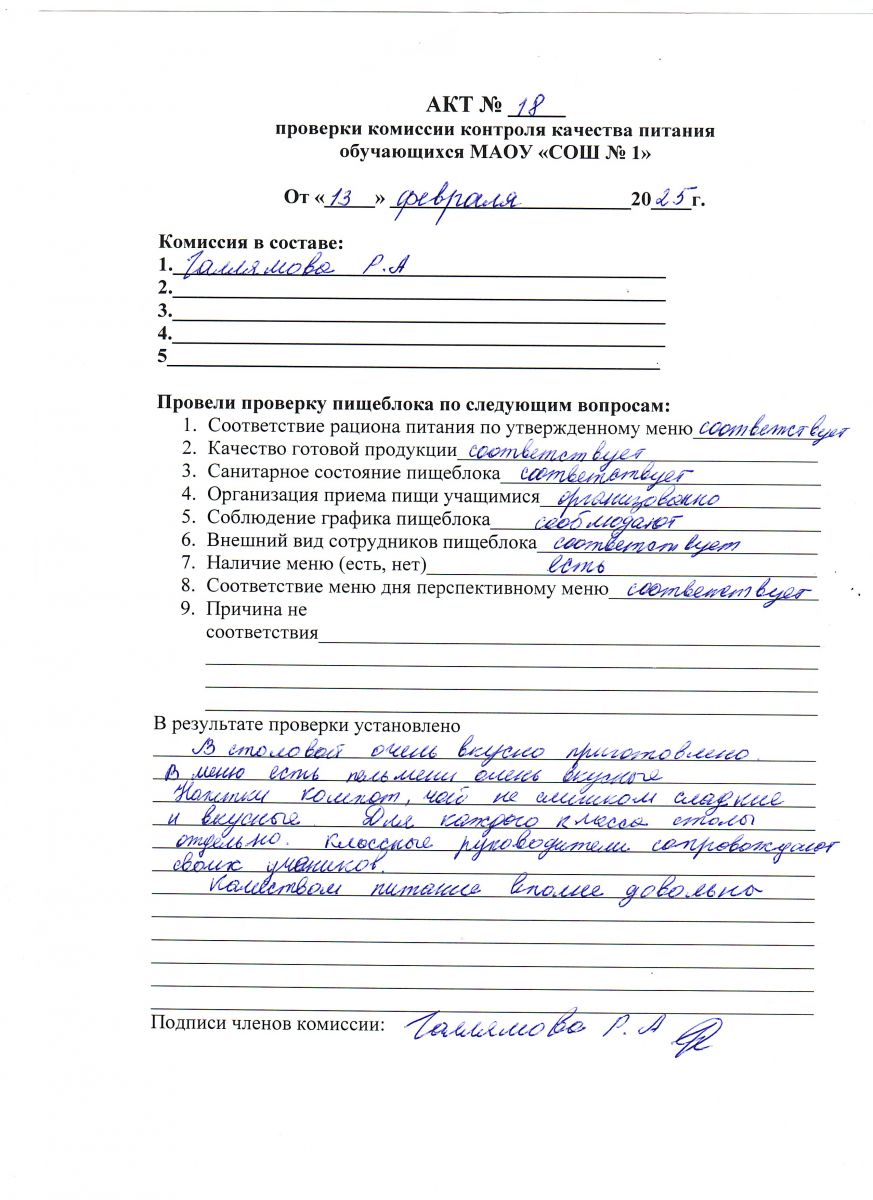 АКТ № 18
проверки комиссии контроля качества питания
обучающихся МАОУ «СОШ № 1»
От «13» февраля 2025г.
Комиссия в составе:
1. Галлямова Р.А
2.
3.
4.
5
Провели проверку пищеблока по следующим вопросам:
1. Соответствие рациона питания по утвержденному меню соответствует
2. Качество готовой продукции соответствует
3. Санитарное состояние пищеблока соответствует
4. Организация приема пищи учащимися организованно
5. Соблюдение графика пищеблока сооблюдают
6. Внешний вид сотрудников пищеблока соответствует
7. Наличие меню (есть, нет) есть
8. Соответствие меню дня перспективному меню соответствует
9. Причина не
соответствия
В результате проверки установлено
В столовой очень вкусно приготовлено.
В меню есть пельмени очень вкусные
Напитки компот, чай не слишком сладкие
и вкусные. Для каждого класса столы
отдельно. классные руководители сопровождают
своих учеников.
Качеством питание вполне довольны
Подписи членов комиссии: Галлямова Р. А